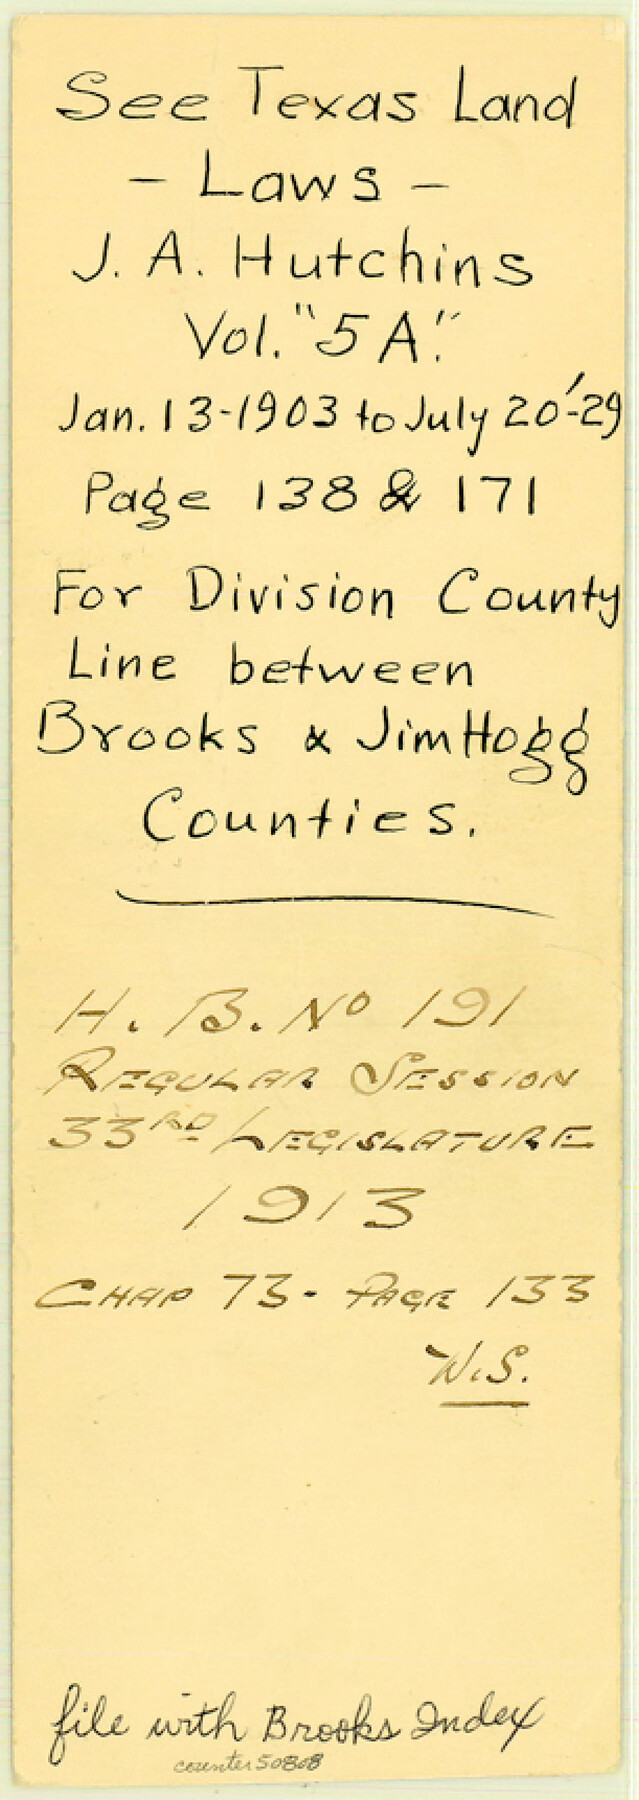 See Texas Land
- Laws -
J. A. Hutchins
Vol. "5A".
Jan. 13-1903 to July 20'-29
Page 138 & 171
For Division County
Line between
Brooks & Jim Hogg
Counties.
H. B. No 191
REGULAR SESSION
33RD LEGISLATURE
1913
CHAP 73- PAGE 133
W.S.
file with Brooks Index
counter 50808